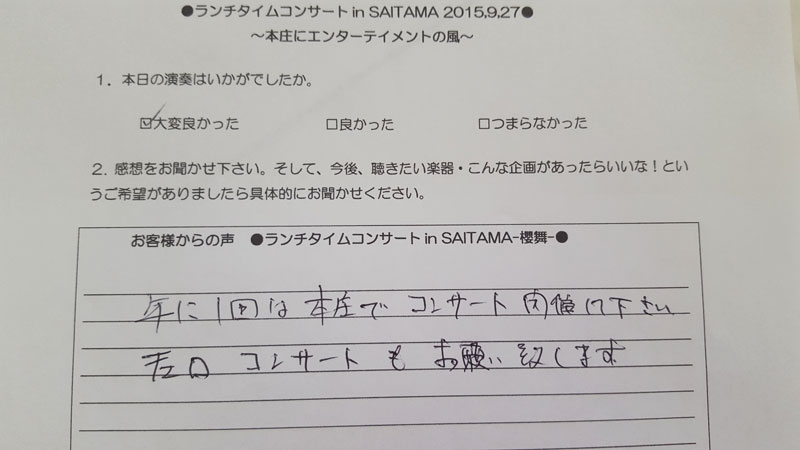 ●ランチタイムコンサート in SAITAMA 2015,9,27●
～本庄にエンターテイメントの風～
1．本日の演奏はいかがでしたか。
☑大変良かった □良かった □つまらなかった
2．感想をお聞かせ下さい。そして、今後、聴きたい楽器・こんな企画があったらいいな！とい
うご希望がありましたら具体的にお聞かせください。
お客様からの声 ●ランチタイムコンサート in SAITAMA-櫻舞-●
年に1回は本庄でコンサート開催して下さい
コンサートもお願い致します